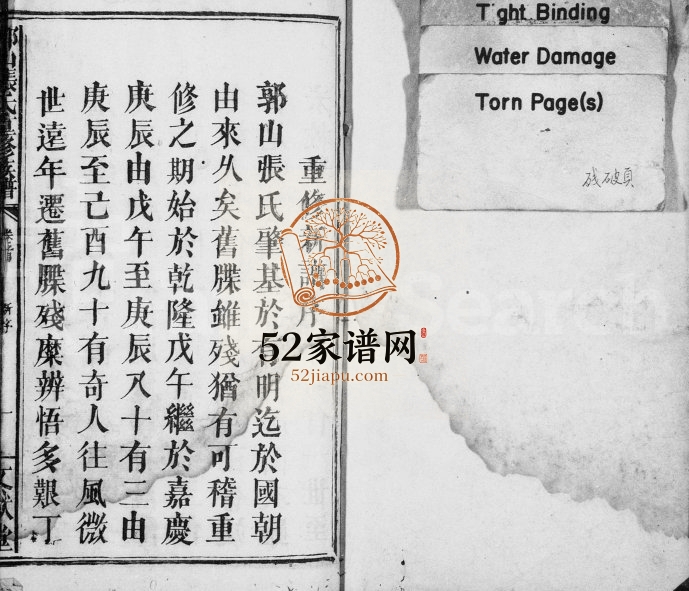 Tight Binding
Water Damage
Torn Page(s)
残破頁
重修新譜序
郭山張氏肇基於有明迄於國朝
由來久矣舊牒雖殘猶有可稽重
修之期始於乾隆戊午繼於嘉慶
庚辰由戊午至庚辰八十有三由
庚辰至己酉九十有奇人往風微
世遠年遷舊牒殘糜辨悟多艱丁
郭山張氏重修族譜
卷之首
新序
一
文獻堂
52家谱网
52jiapu.com
Search